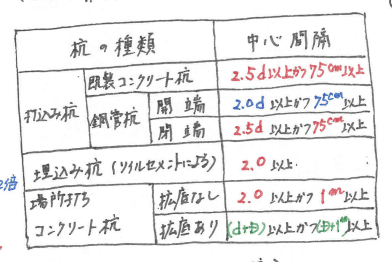 杭の種類 中心間隔
打込み杭 既製コンクリート杭 2.5d以上かつ75cm以上
鋼管杭 開端 2.0d以上かつ75cm以上
閉端 2.5d以上かつ75cm以上
埋込み杭(ソイルセメントによる) 2.0以上
2倍
場所打ちコンクリート杭 拡底なし 2.0以上かつ1m以上
拡底あり (d+D)以上かつ(D+1m)以上